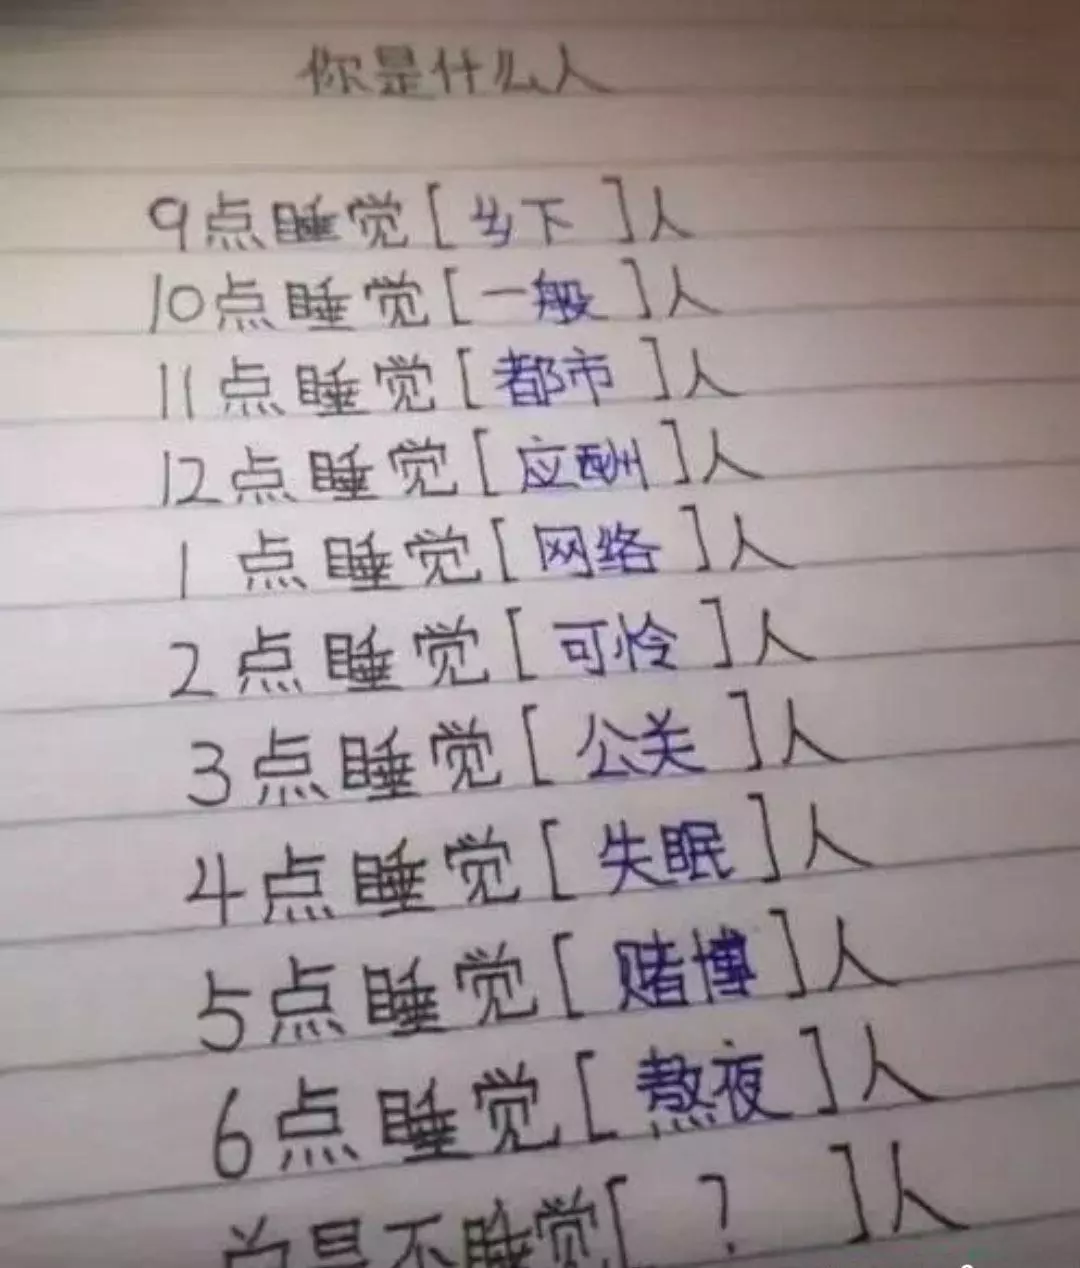 你是什么人
9点睡觉[乡下]人
10点睡觉[一般]人
11点睡觉[都市]人
12点睡觉[应酬]人
1点睡觉[网络]人
2点睡觉[可怜]人
3点睡觉[公关]人
4点睡觉[失眠]人
5点睡觉[赌博]人
6点睡觉[熬夜]人
不睡觉[?]人